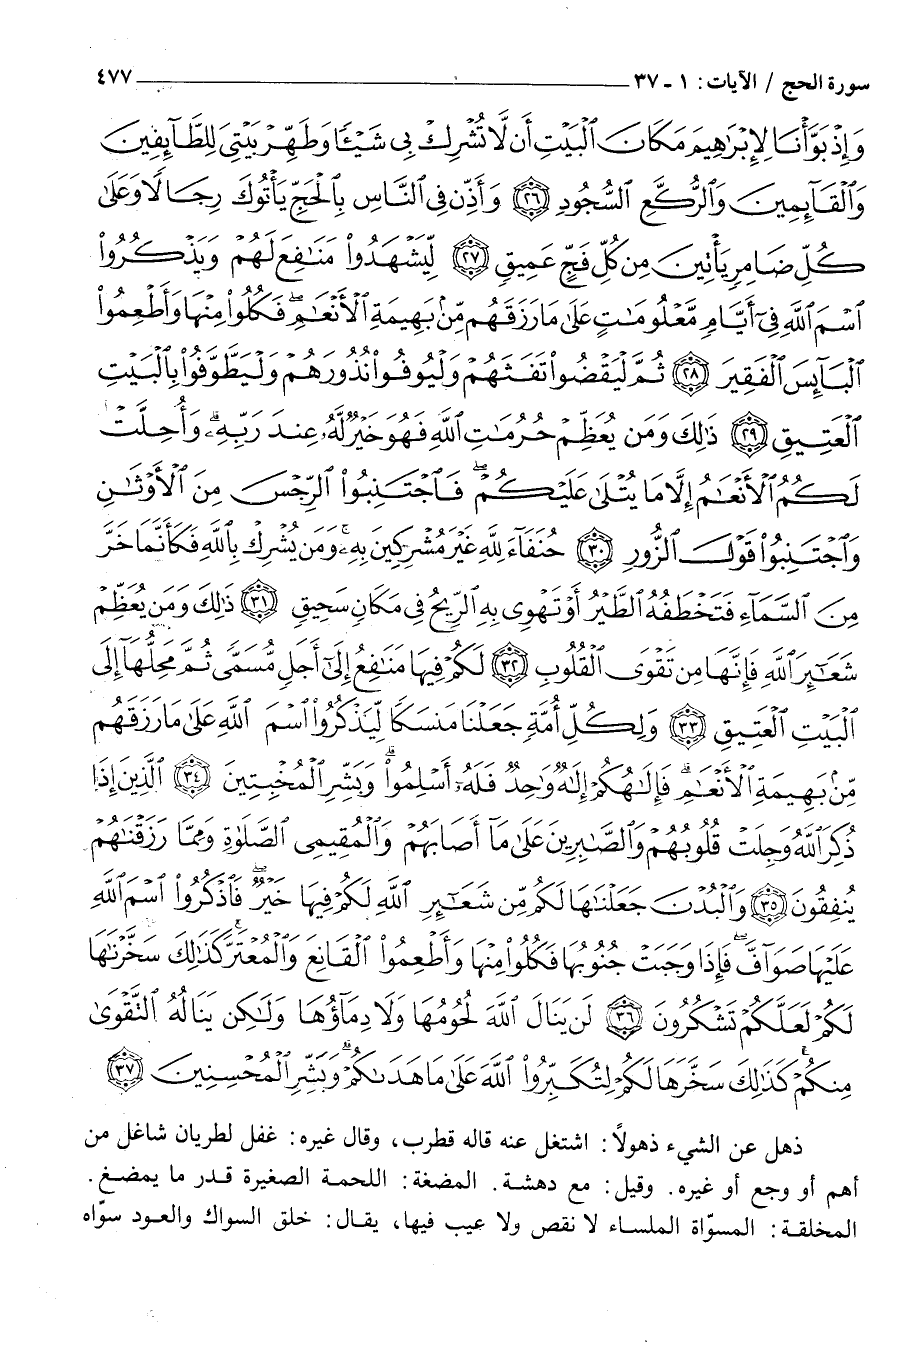 سورة الحج / الآيات: ١ ـ ٣٧ ٤٧٧
وَإِذْ بَوَّأْنَا لِإِبْرَٰهِيمَ مَكَانَ ٱلْبَيْتِ أَن لَّا تُشْرِكْ بِى شَيْـًٔا وَطَهِّرْ بَيْتِىَ لِلطَّآئِفِينَ
وَٱلْقَآئِمِينَ وَٱلرُّكَّعِ ٱلسُّجُودِ ﴿٢٦﴾ وَأَذِّن فِى ٱلنَّاسِ بِٱلْحَجِّ يَأْتُوكَ رِجَالًا وَعَلَىٰ
كُلِّ ضَامِرٍ يَأْتِينَ مِن كُلِّ فَجٍّ عَمِيقٍ ﴿٢٧﴾ لِّيَشْهَدُوا۟ مَنَٰفِعَ لَهُمْ وَيَذْكُرُوا۟
ٱسْمَ ٱللَّهِ فِىٓ أَيَّامٍ مَّعْلُومَٰتٍ عَلَىٰ مَا رَزَقَهُم مِّنۢ بَهِيمَةِ ٱلْأَنْعَٰمِ ۖ فَكُلُوا۟ مِنْهَا وَأَطْعِمُوا۟
ٱلْبَآئِسَ ٱلْفَقِيرَ ﴿٢٨﴾ ثُمَّ لْيَقْضُوا۟ تَفَثَهُمْ وَلْيُوفُوا۟ نُذُورَهُمْ وَلْيَطَّوَّفُوا۟ بِٱلْبَيْتِ
ٱلْعَتِيقِ ﴿٢٩﴾ ذَٰلِكَ وَمَن يُعَظِّمْ حُرُمَٰتِ ٱللَّهِ فَهُوَ خَيْرٌ لَّهُۥ عِندَ رَبِّهِۦ ۗ وَأُحِلَّتْ
لَكُمُ ٱلْأَنْعَٰمُ إِلَّا مَا يُتْلَىٰ عَلَيْكُمْ ۖ فَٱجْتَنِبُوا۟ ٱلرِّجْسَ مِنَ ٱلْأَوْثَٰنِ
وَٱجْتَنِبُوا۟ قَوْلَ ٱلزُّورِ ﴿٣٠﴾ حُنَفَآءَ لِلَّهِ غَيْرَ مُشْرِكِينَ بِهِۦ ۚ وَمَن يُشْرِكْ بِٱللَّهِ فَكَأَنَّمَا خَرَّ
مِنَ ٱلسَّمَآءِ فَتَخْطَفُهُ ٱلطَّيْرُ أَوْ تَهْوِى بِهِ ٱلرِّيحُ فِى مَكَانٍ سَحِيقٍ ﴿٣١﴾ ذَٰلِكَ وَمَن يُعَظِّمْ
شَعَٰٓئِرَ ٱللَّهِ فَإِنَّهَا مِن تَقْوَى ٱلْقُلُوبِ ﴿٣٢﴾ لَكُمْ فِيهَا مَنَٰفِعُ إِلَىٰٓ أَجَلٍ مُّسَمًّى ثُمَّ مَحِلُّهَآ إِلَى
ٱلْبَيْتِ ٱلْعَتِيقِ ﴿٣٣﴾ وَلِكُلِّ أُمَّةٍ جَعَلْنَا مَنسَكًا لِّيَذْكُرُوا۟ ٱسْمَ ٱللَّهِ عَلَىٰ مَا رَزَقَهُم
مِّنۢ بَهِيمَةِ ٱلْأَنْعَٰمِ ۗ فَإِلَٰهُكُمْ إِلَٰهٌ وَٰحِدٌ فَلَهُۥٓ أَسْلِمُوا۟ ۗ وَبَشِّرِ ٱلْمُخْبِتِينَ ﴿٣٤﴾ ٱلَّذِينَ إِذَا
ذُكِرَ ٱللَّهُ وَجِلَتْ قُلُوبُهُمْ وَٱلصَّٰبِرِينَ عَلَىٰ مَآ أَصَابَهُمْ وَٱلْمُقِيمِى ٱلصَّلَوٰةِ وَمِمَّا رَزَقْنَٰهُمْ
يُنفِقُونَ ﴿٣٥﴾ وَٱلْبُدْنَ جَعَلْنَٰهَا لَكُم مِّن شَعَٰٓئِرِ ٱللَّهِ لَكُمْ فِيهَا خَيْرٌ ۖ فَٱذْكُرُوا۟ ٱسْمَ ٱللَّهِ
عَلَيْهَا صَوَآفَّ ۖ فَإِذَا وَجَبَتْ جُنُوبُهَا فَكُلُوا۟ مِنْهَا وَأَطْعِمُوا۟ ٱلْقَانِعَ وَٱلْمُعْتَرَّ ۚ كَذَٰلِكَ سَخَّرْنَٰهَا
لَكُمْ لَعَلَّكُمْ تَشْكُرُونَ ﴿٣٦﴾ لَن يَنَالَ ٱللَّهَ لُحُومُهَا وَلَا دِمَآؤُهَا وَلَٰكِن يَنَالُهُ ٱلتَّقْوَىٰ
مِنكُمْ ۚ كَذَٰلِكَ سَخَّرَهَا لَكُمْ لِتُكَبِّرُوا۟ ٱللَّهَ عَلَىٰ مَا هَدَىٰكُمْ ۗ وَبَشِّرِ ٱلْمُحْسِنِينَ ﴿٣٧﴾
ذهل عن الشيء ذهولاً: اشتغل عنه قاله قطرب، وقال غيره: غفل لطريان شاغل من
أهم أو وجع أو غيره. وقيل: مع دهشة. المضغة: اللحمة الصغيرة قدر ما يمضغ.
المخلقة: المسوّاة الملساء لا نقص ولا عيب فيها، يقال: خلق السواك والعود سوّاه